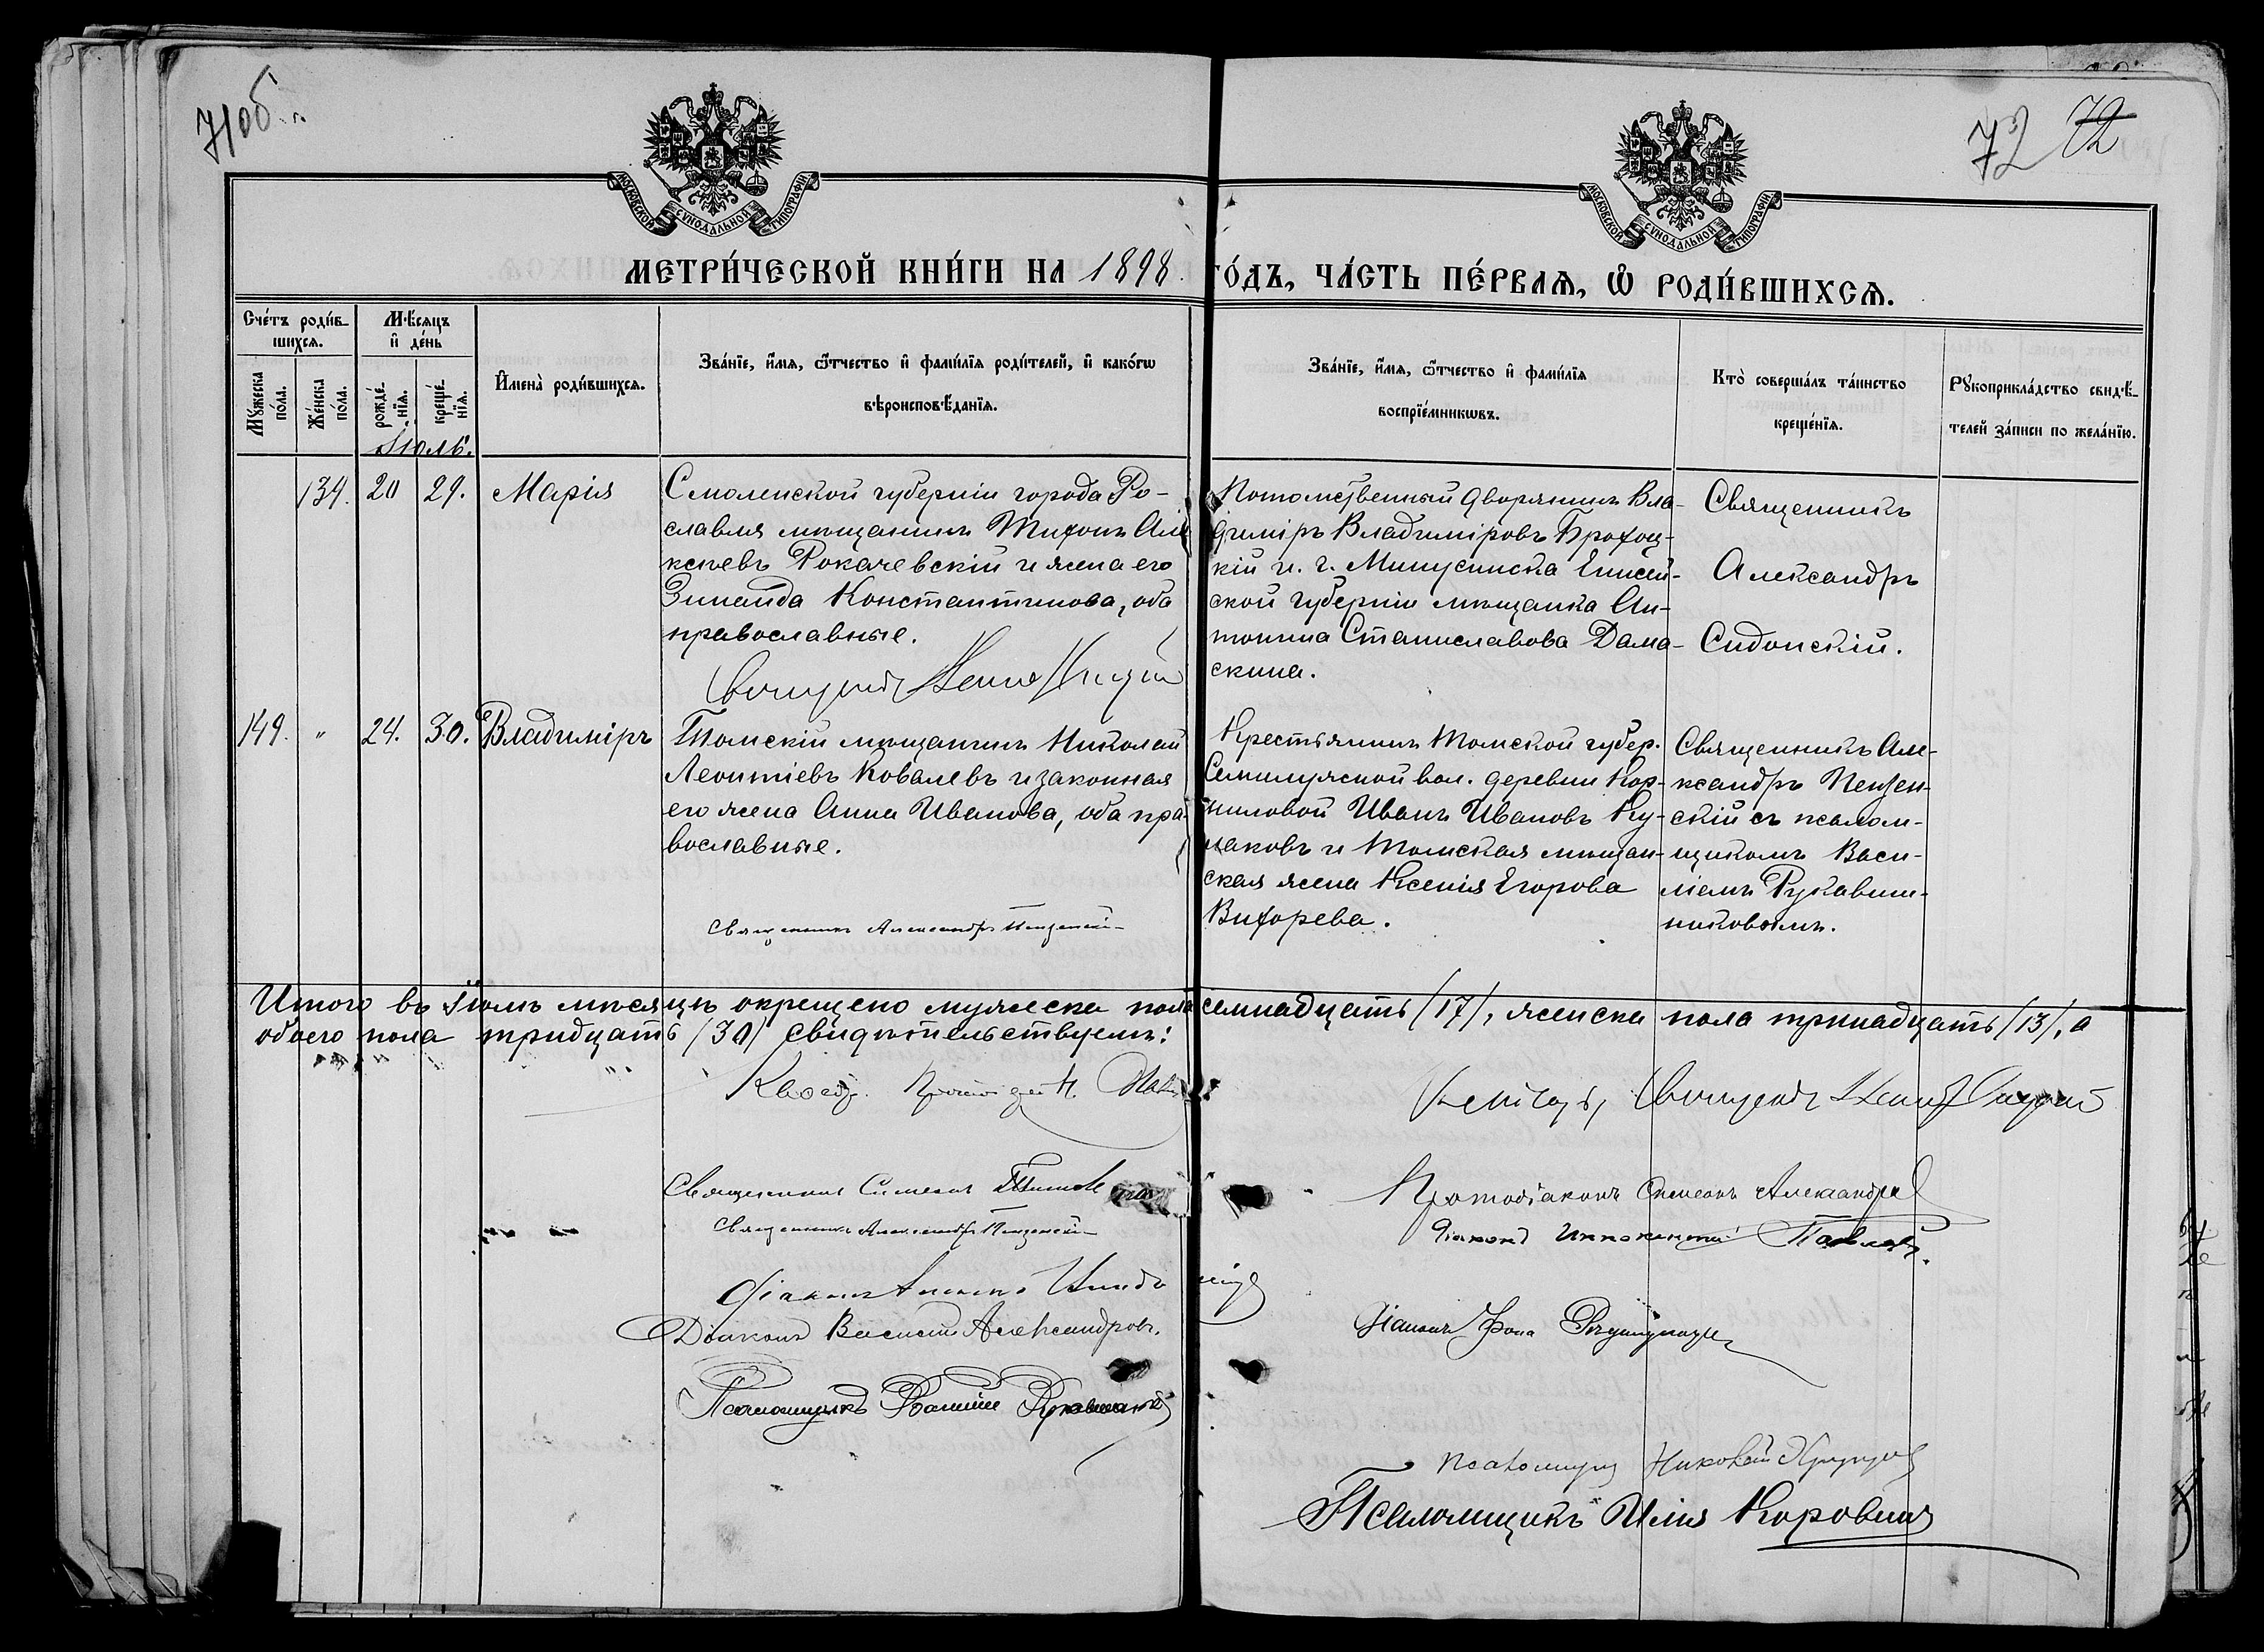 71 об.
72 72
МОСКОВСКОЙ СѴНОДАЛЬНОЙ ТИПОГРАФІИ
МОСКОВСКОЙ СѴНОДАЛЬНОЙ ТИПОГРАФІИ
МЕТРИ́ЧЕСКОЙ КНИ́ГИ НА 1898 ГО́ДЪ, ЧА́СТЬ ПЕ́РВАѦ, Ѡ҆ РОДИ́ВШИХСѦ.
Сче́тъ роди́в-
шихсѧ.
Мꙋ́жеска по́ла.
Же́нска по́ла.
Мѣ́сѧцъ и҆ де́нь
рожде́-нїѧ.
креще́-нїѧ.
Іюль.
И҆мена̀ роди́вшихсѧ.
Зва́нїе, и҆́мѧ, ѻ҆́тчество и҆ фами́лїѧ роди́телей, и҆ како́гѡ
вѣроисповѣ́данїѧ.
Зва́нїе, и҆́мѧ, ѻ҆́тчество и҆ фами́лїѧ
воспрїе́мникѡвъ.
Кто̀ соверша́лъ та́инство
креще́нїѧ.
Рꙋкоприкла́дство свидѣ́-
телей за́писи по жела́нїю.
134. 20 29. Марія
Смоленской губерніи города Ро-
славля мѣщанинъ Тихонъ Але-
ксѣевъ Рокачевскій и жена его
Зинаида Константинова, оба
православные.
Потомственный дворянинъ Вла-
диміръ Владиміровъ Брохоц-
кій и г. Минусинска Енисей-
ской губерніи мѣщанка Ан-
тонина Станиславова Дама-
скина.
Священникъ
Александръ
Сидонскій.
149. " 24. 30. Владиміръ
Томскій мѣщанинъ Николай
Леонтіевъ Ковалевъ и законная
его жена Анна Иванова, оба пра-
вославные.
Священникъ Александръ Пензенскій
Крестьянинъ Томской губер.
Семилужской вол. деревни Кор-
ниловой Иванъ Ивановъ Ку-
цаковъ и Томская мѣщан-
ская жена Ксенія Егорова
Вихорева.
Священникъ Але-
ксандръ Пензен-
скій съ псалом-
щикомъ Васи-
ліемъ Рукавиш-
никовымъ.
Итого въ Іюлѣ мѣсяцѣ окрещено мужеска пола семнадцать /17/, женска пола тринадцать /13/, а
обоего пола тридцать /30/ свидѣтельствуемъ:
Священникъ Симеонъ
Протодіаконъ Симеонъ Александров
Священникъ Александръ Пензенскій
Діаконъ Иннокентій Павловъ.
Діаконъ
Діаконъ Василій Александровъ.
Діаконъ Іона
Псаломщикъ Василій Рукавишников
Псаломщикъ Николай
Псаломщикъ Илія Коровинъ